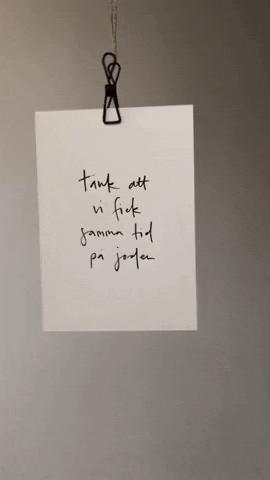 tänk att
vi fick
samma tid
på jorden